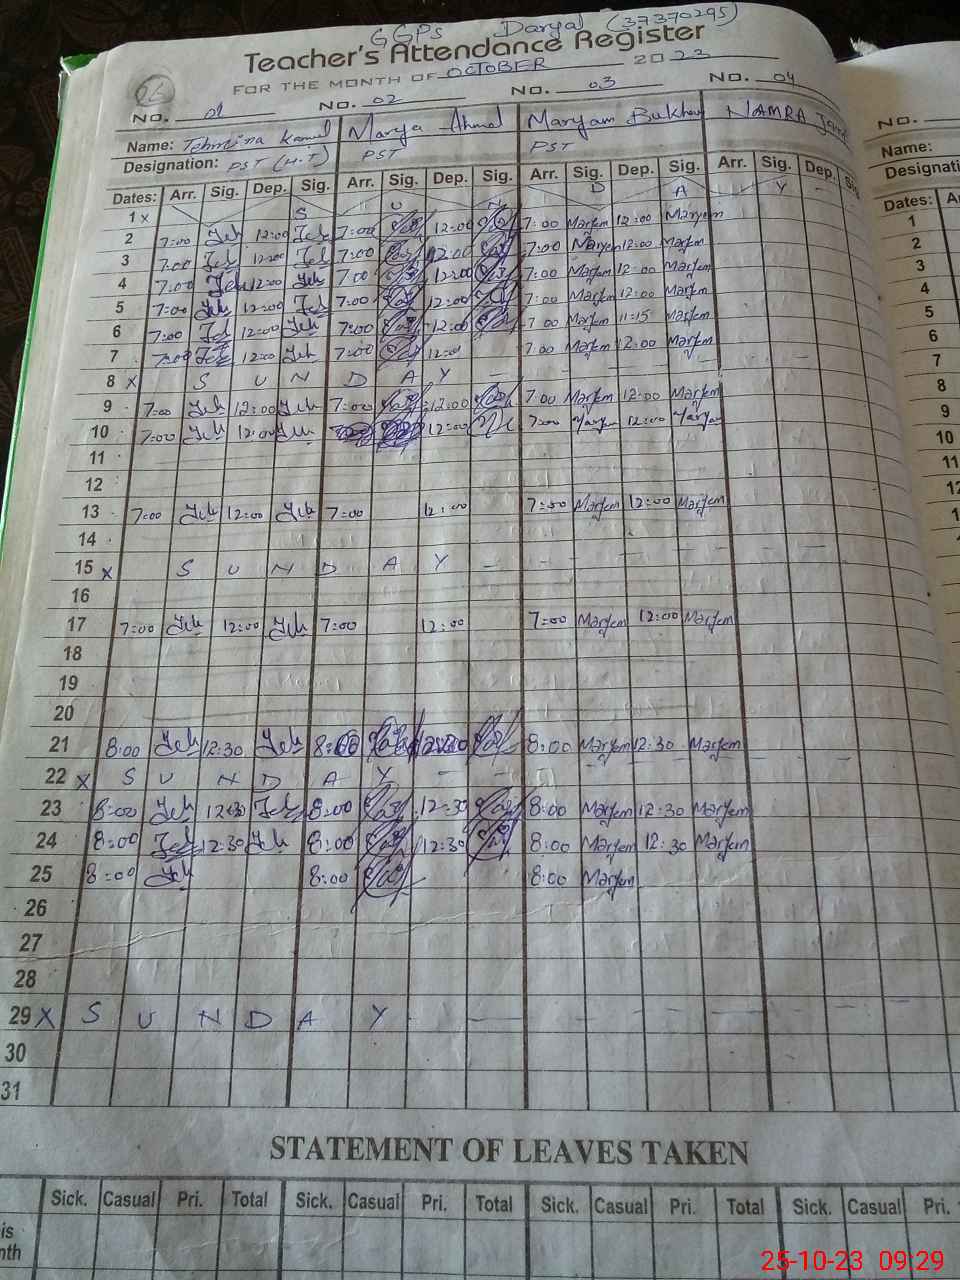 GGPS Daryal (37370295)
Teacher's Attendance Register
FOR THE MONTH OF OCTOBER 2023
26
NO. 01 NO. 02 NO. 03 NO. 04 NO.
Name: Tehmina Kamal Marya Ahmad Maryam Bukhari NAMRA Name:
Designation: PST (H.T) PST PST
Dates: Arr. Sig. Dep. Sig. Arr. Sig. Dep. Sig. Arr. Sig. Dep. Sig. Arr. Sig. Dep. Sig.
1 x S U N D A Y - 1
2 7:00 Teh 12:00 Teh 7:00 12:00 7:00 Maryem 12:00 Maryem 2
3 7:00 Teh 12:00 Teh 7:00 12:00 7:00 Maryem 12:00 Maryem 3
4 7:00 Teh 12:00 Teh 7:00 12:00 7:00 Maryem 12:00 Maryem 4
5 7:00 Teh 12:00 Teh 7:00 12:00 7:00 Maryem 12:00 Maryem 5
6 7:00 Teh 12:00 Teh 7:00 12:00 7:00 Maryem 11:15 Maryem 6
7 7:00 Teh 12:00 Teh 7:00 12:00 7:00 Maryem 12:00 Maryem 7
8 x S U N D A Y - 8
9 7:00 Teh 12:00 Teh 7:00 12:00 7:00 Maryem 12:00 Maryem 9
10 7:00 Teh 12:00 Teh 12:00 7:00 Maryem 12:00 Maryem 10
11 11
12 12
13 7:00 Teh 12:00 Teh 7:00 12:00 7:00 Maryem 12:00 Maryem 13
14
15 x S U N D A Y - -
16
17 7:00 Teh 12:00 Teh 7:00 12:00 7:00 Maryem 12:00 Maryem
18
19
20
21 8:00 Teh 12:30 Teh 8:00 12:30 8:00 Maryem 12:30 Maryem
22 x S U N D A Y - -
23 8:00 Teh 12:30 Teh 8:00 12:30 8:00 Maryem 12:30 Maryem
24 8:00 Teh 12:30 Teh 8:00 12:30 8:00 Maryem 12:30 Maryem
25 8:00 Teh 8:00 8:00 Maryem
26
27
28
29 X S U N D A Y - -
30
31
STATEMENT OF LEAVES TAKEN
Sick. Casual Pri. Total Sick. Casual Pri. Total Sick. Casual Pri. Total Sick. Casual Pri.
25-10-23 09:29